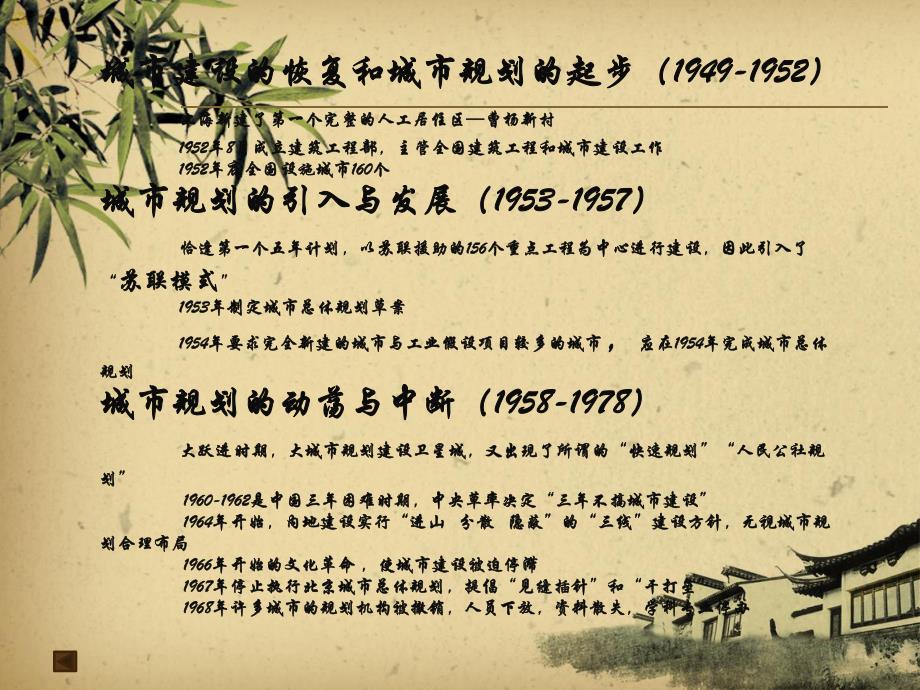 城市建设的恢复和城市规划的起步（1949-1952）
上海新建了第一个完整的人工居住区—曹杨新村
1952年8月成立建筑工程部，主管全国建筑工程和城市建设工作
1952年底全国设施城市160个
城市规划的引入与发展（1953-1957）
恰逢第一个五年计划，以苏联援助的156个重点工程为中心进行建设，因此引入了
“苏联模式”
1953年制定城市总体规划草案
1954年要求完全新建的城市与工业假设项目较多的城市， 应在1954年完成城市总体
规划
城市规划的动荡与中断（1958-1978）
大跃进时期，大城市规划建设卫星城，又出现了所谓的“快速规划”“人民公社规
划”
1960-1962是中国三年困难时期，中央草率决定“三年不搞城市建设”
1964年开始，内地建设实行“进山 分散 隐蔽”的“三线”建设方针，无视城市规
划合理布局
1966年开始的文化革命，使城市建设被迫停滞
1967年停止执行北京城市总体规划，提倡“见缝插针”和“干打垒
1968年许多城市的规划机构被撤销，人员下放，资料散失，学科专业停办